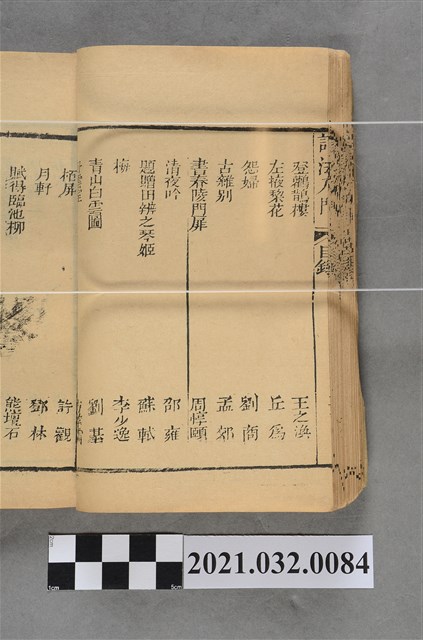 詩法入門 目錄
登鸛鵲樓 王之渙
左掖梨花 丘為
怨婦 劉商
古離別 孟郊
書舂陵門屏 周惇頤
清夜吟 邵雍
題贈田辨之琴姬 蘇軾
梅 李少逸
青山白雲圖 劉基
栢屏 許觀
月軒 鄧林
賦得臨池柳 熊壇石
2021.032.0084
1cm
2cm
5cm